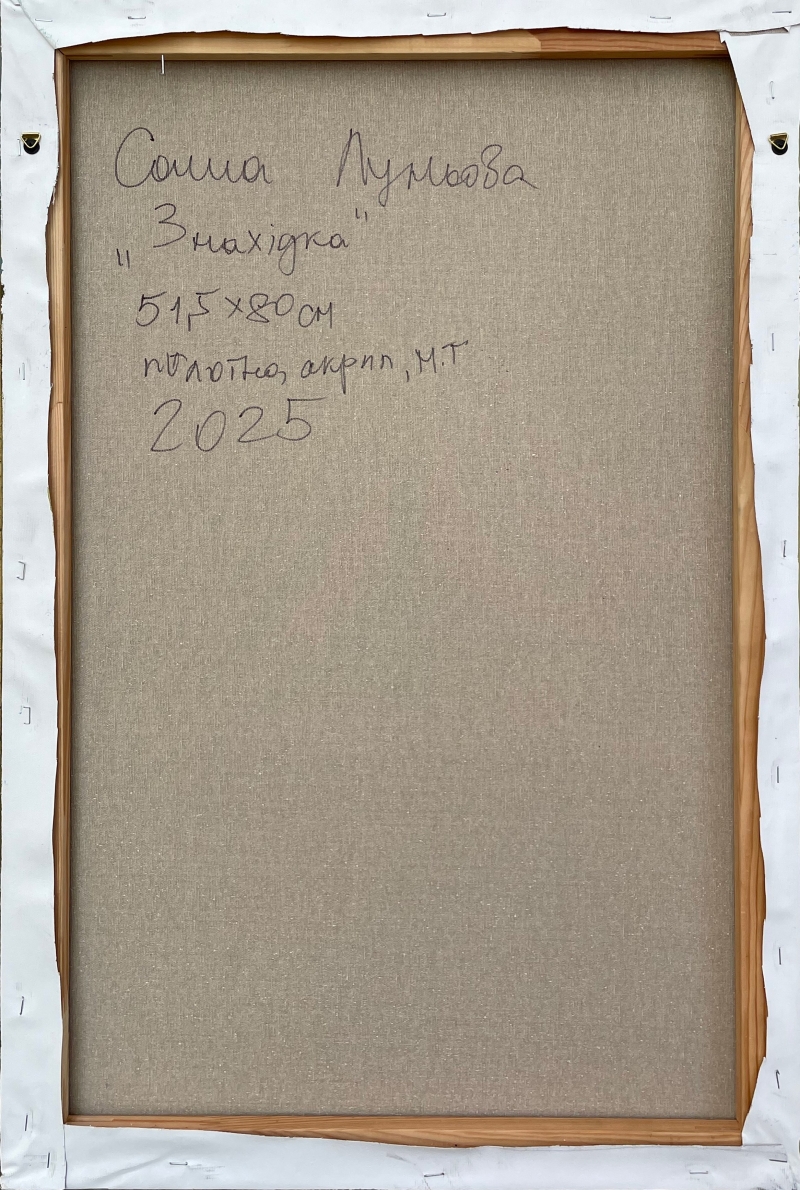 Саша Луньова
„Знахідка"
51,5×80 см
полотно, акрил, м.т
2025